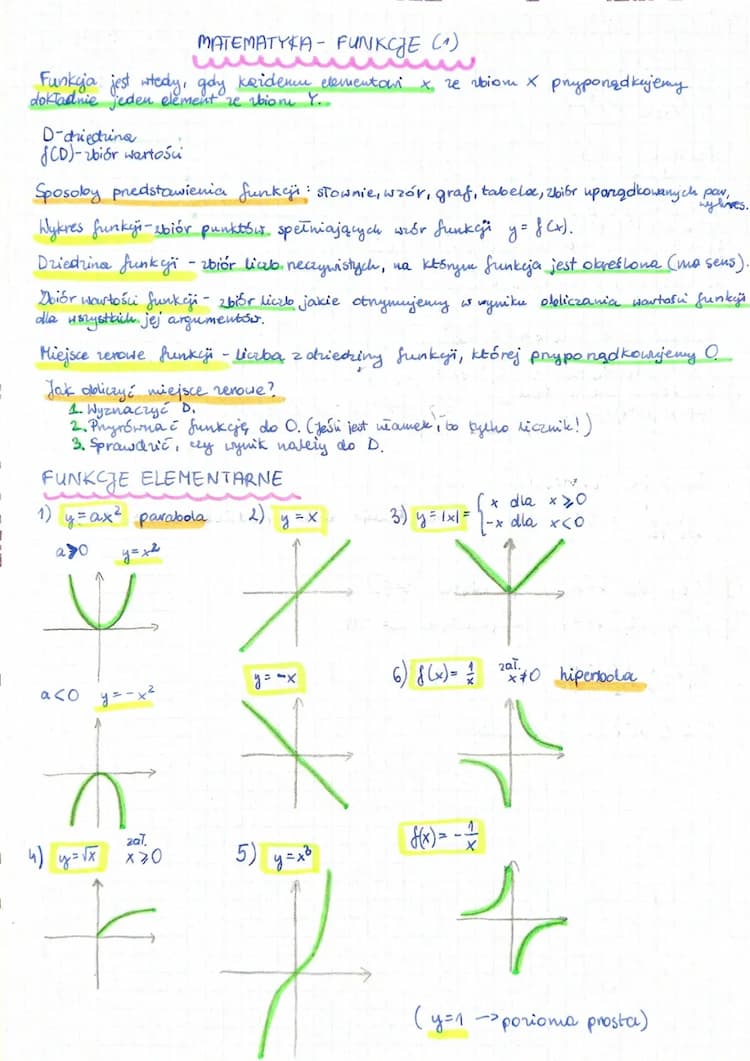 MATEMATYKA - FUNKCJE (1)
Funkcja jest wtedy, gdy każdemu elementowi x ze zbioru X przyporządkujemy
dokładnie jeden element ze zbioru Y.
D-dziedzina
f(D)-zbiór wartości
Sposoby przedstawienia funkcji: słownie, wzór, graf, tabelce, zbiór uporządkowanych par,
wykres.
Wykres funkcji-zbiór punktów spełniających wzór funkcji y = f(x).
Dziedzina funkcji - zbiór liczb rzeczywistych, na którym funkcja jest określona (ma sens).
Zbiór wartości funkcji - zbiór liczb jakie otrzymujemy w wyniku obliczania wartości funkcji
dla wszystkich jej argumentów.
Miejsce zerowe funkcji - liczba z dziedziny funkcji, której przyporządkowujemy 0.
Jak obliczyć miejsce zerowe?
1. Wyznaczyć D.
2. Przyrównać funkcję do 0. (Jeśli jest ułamek, to tylko licznik!)
3. Sprawdzić, czy wynik należy do D.
FUNKCJE ELEMENTARNE
1) y=ax² parabola 2) y=x 3) y=|x|= { x dla x⩾0
-x dla x<0
a>0 y=x²
a<0 y=-x² y=-x 6) f(x)= 1/x zał. x≠0 hiperbola
f(x)= - 1/x
4) y=√x zał. x⩾0 5) y=x³
(y=1 -> pozioma prosta)